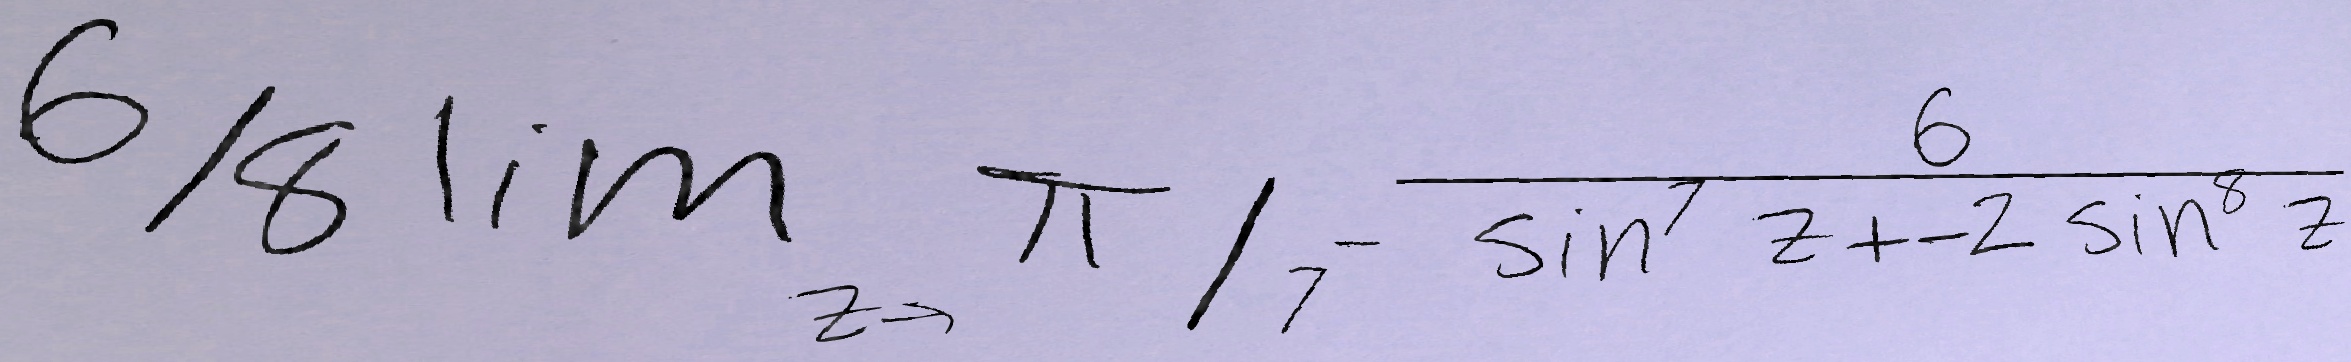 6/8 lim_{z→π/7^-} \frac{6}{sin^7 z+-2 sin^8 z}